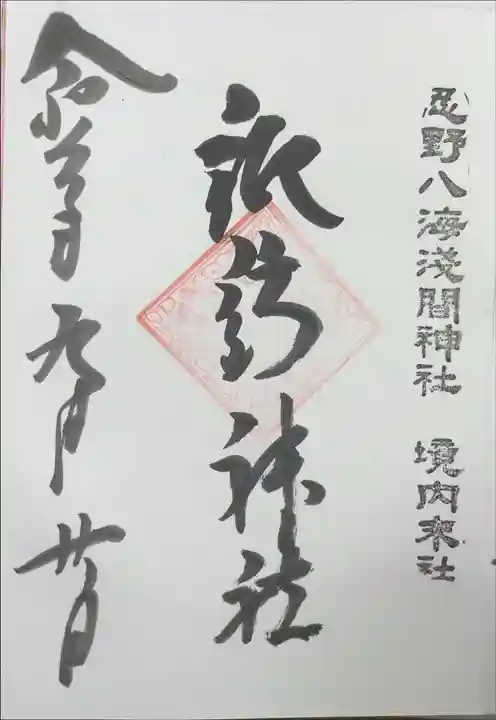 忍野八海淺間神社　境内末社
神社
令和 年 九月 廿日